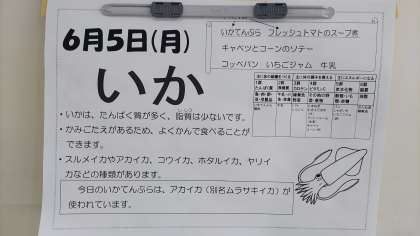 6月5日(月)
いか
いかてんぷら フレッシュトマトのスープ煮
キャベツとコーンのソテー
コッペパン いちごジャム 牛乳
・いかは、たんぱく質が多く、脂質は少ないです。
・かみごたえがあるため、よくかんで食べることが
できます。
・スルメイカやアカイカ、コウイカ、ホタルイカ、ヤリイ
カなどの種類があります。
今日のいかてんぷらは、アカイカ(別名ムラサキイカ)が
使われています。